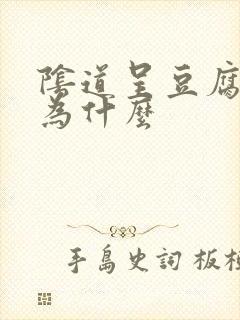 陰道呈豆腐
為什麼
手島史詞 板橋